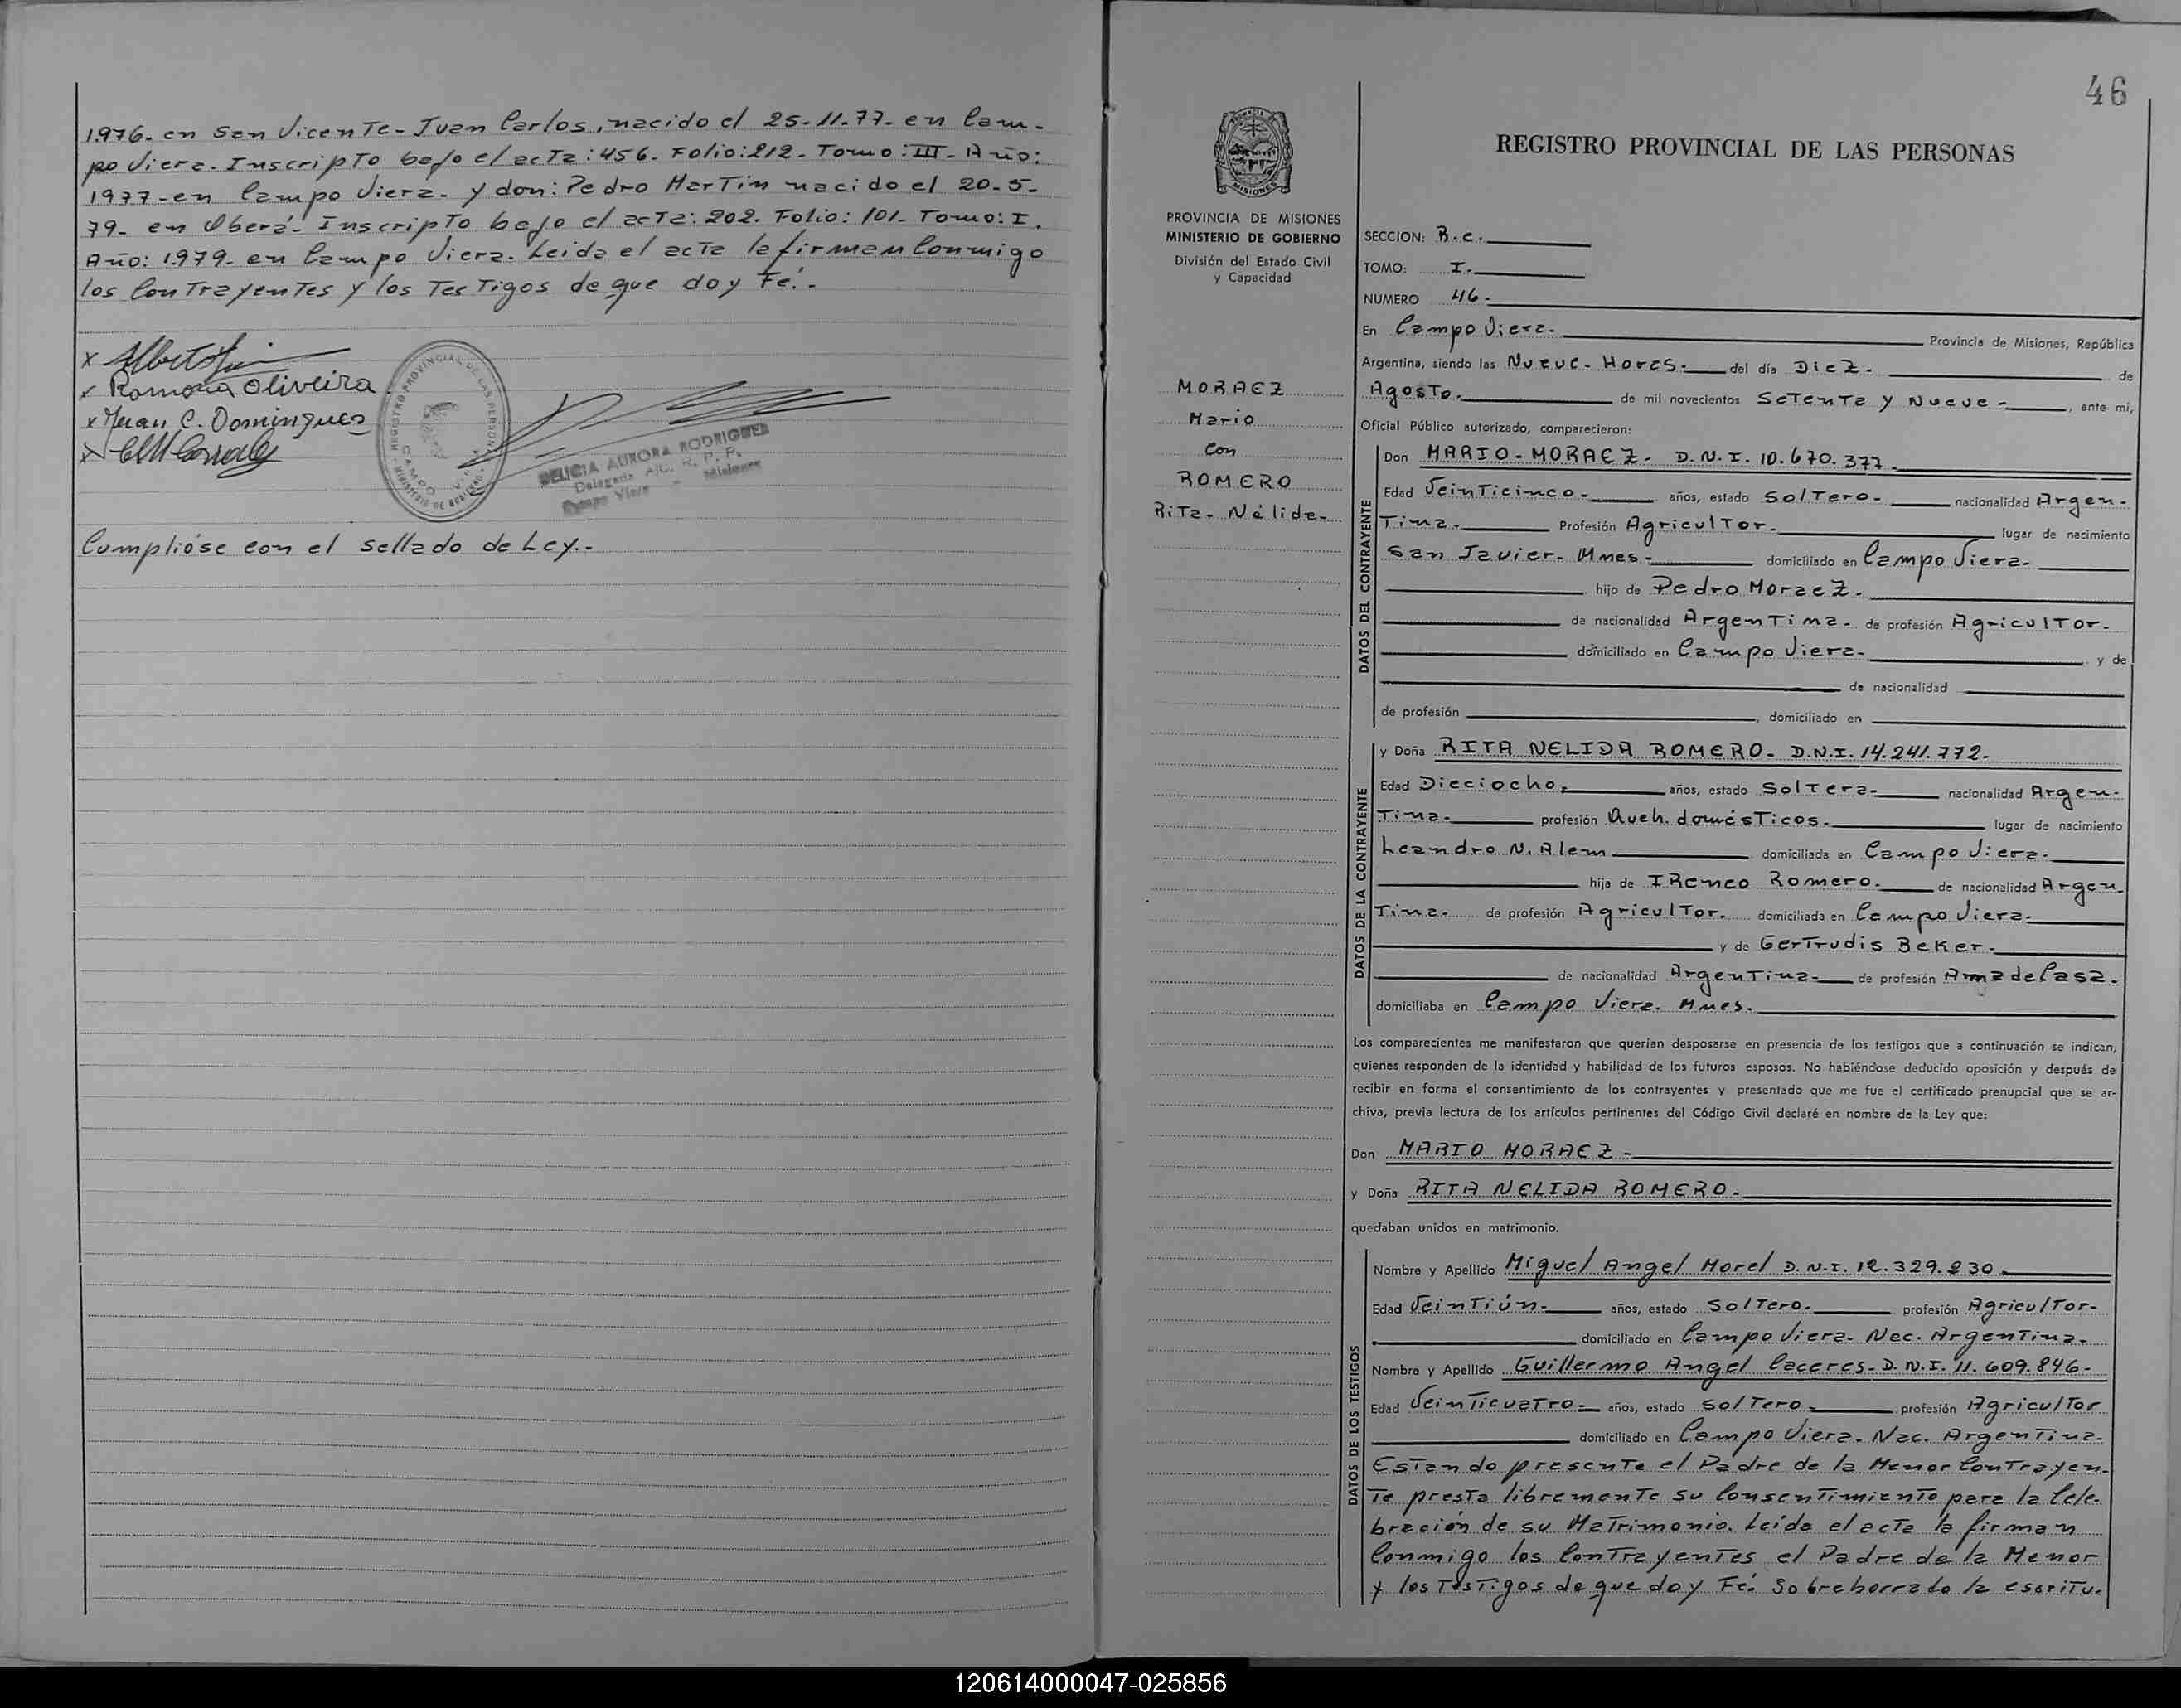 1.976- en San Vicente- Juan Carlos, nacido el 25-11-77- en Cam-
po Viera- Inscripto bajo el acta: 456- Folio: 212- Tomo: III- Año:
1977- en Campo Viera- y don: Pedro Martin nacido el 20-5-
79- en Oberá- Inscripto bajo el acta: 202. Folio: 101- Tomo: I.
Año: 1.979- en Campo Viera. Leida el acta la firman Conmigo
los Contrayentes y los Testigos de que doy Fé.-
x Alberto
x Ramona Oliveira
x Juan C. Domingues
x
REGISTRO PROVINCIAL DE LAS PERSONAS
MINISTERIO DE GOBIERNO
CAMPO
DELICIA AURORA RODRIGUEZ
Delegada A/C. R. P. P.
Campo Viera - Misiones
Cumplióse con el sellado de Ley.-
46
REGISTRO PROVINCIAL DE LAS PERSONAS
MISIONES
PROVINCIA DE MISIONES
MINISTERIO DE GOBIERNO
División del Estado Civil
y Capacidad
MORAEZ
Mario
Con
ROMERO
Rita- Nélida-
SECCION: R.c.
TOMO: I.
NUMERO 46-
En Campo Viera- Provincia de Misiones, República
Argentina, siendo las Nueve- Horas- del día Diez- de
Agosto- de mil novecientos Setenta y Nueve-, ante mí,
Oficial Público autorizado, comparecieron:
DATOS DEL CONTRAYENTE
Don MARIO- MORAEZ- D.N.I. 10.670.377-
Edad Veinticinco- años, estado Soltero- nacionalidad Argen-
tina- Profesión Agricultor- lugar de nacimiento
San Javier- Mnes- domiciliado en Campo Viera-
hijo de Pedro Moraez-
de nacionalidad Argentina- de profesión Agricultor-
domiciliado en Campo Viera- y de
de nacionalidad
de profesión , domiciliado en
DATOS DE LA CONTRAYENTE
y Doña RITA NELIDA ROMERO- D.N.I. 14.241.772-
Edad Dieciocho, años, estado Soltera- nacionalidad Argen-
tina- profesión Queh. domésticos- lugar de nacimiento
Leandro N. Alem domiciliada en Campo Viera-
hija de IReneo Romero- de nacionalidad Argen-
tina- de profesión Agricultor- domiciliada en Campo Viera-
y de Gertrudis Beker-
de nacionalidad Argentina- de profesión Ama de Casa-
domiciliaba en Campo Viera- Mnes-
Los comparecientes me manifestaron que querían desposarse en presencia de los testigos que a continuación se indican,
quienes responden de la identidad y habilidad de los futuros esposos. No habiéndose deducido oposición y después de
recibir en forma el consentimiento de los contrayentes y presentado que me fue el certificado prenupcial que se ar-
chiva, previa lectura de los artículos pertinentes del Código Civil declaré en nombre de la Ley que:
Don MARIO MORAEZ-
y Doña RITA NELIDA ROMERO-
quedaban unidos en matrimonio.
DATOS DE LOS TESTIGOS
Nombre y Apellido Miguel Angel Morel D.N.I. 12.329.230-
Edad Veintiún- años, estado Soltero- profesión Agricultor-
domiciliado en Campo Viera- Nac. Argentina-
Nombre y Apellido Guillermo Angel Caceres- D.N.I. 11.609.846-
Edad Veinticuatro- años, estado Soltero- profesión Agricultor
domiciliado en Campo Viera- Nac. Argentina-
Estando presente el Padre de la Menor Contrayen-
te presta libremente su Consentimiento para la Cele-
bración de su Matrimonio. Leida el acta la firman
Conmigo los Contrayentes el Padre de la Menor
y los Testigos de que doy Fé. Sobreborrado la escritu-
120614000047-025856